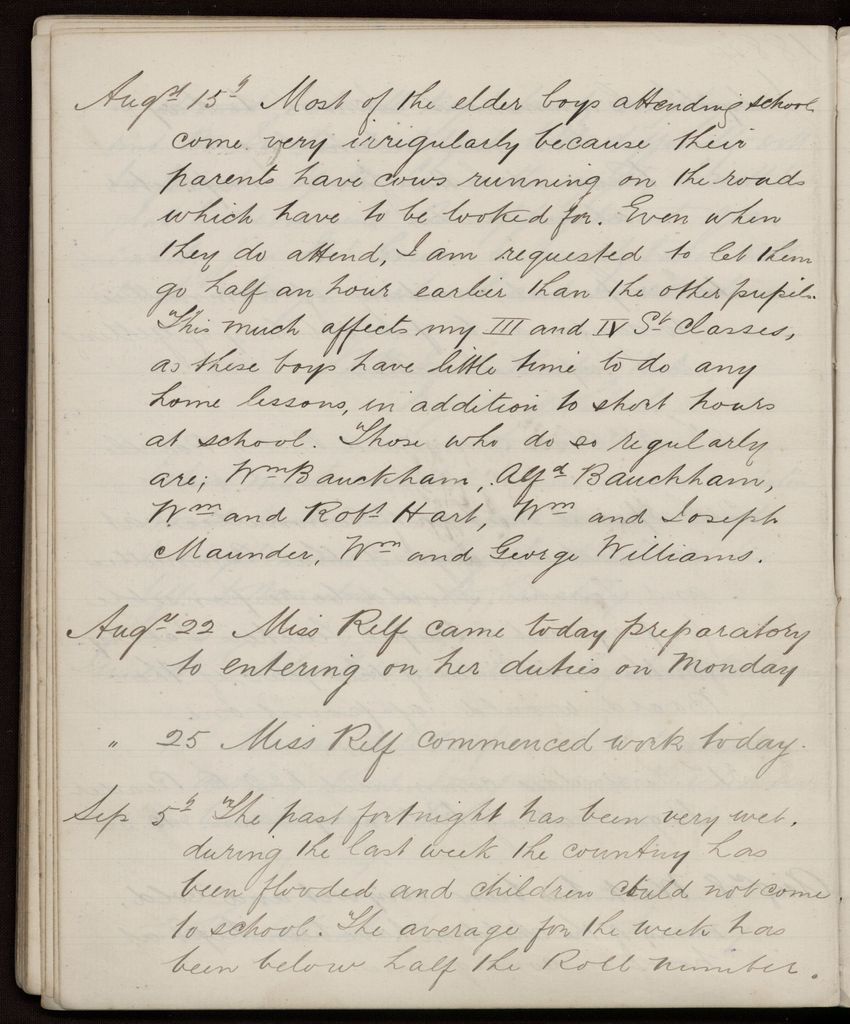 Augst 15th Most of the elder boys attending school
come very irregularly because their
parents have cows running on the roads
which have to be looked for. Even when
they do attend, I am requested to let them
go half an hour earlier than the other pupils.
This much affects my III and IV St. Classes,
as these boys have little time to do any
home lessons, in addition to short hours
at school. Those who do so regularly
are; Wm Bauckham, Alfd Bauckham,
Wm and Robt Hart, Wm and Joseph
Maunder, Wm and George Williams.
Augst 22 Miss Relf came today preparatory
to entering on her duties on Monday
" 25 Miss Relf commenced work today.
Sep 5th The past fortnight has been very wet,
during the last week the country has
been flooded and children could not come
to school. The average for the week has
been below half the Roll number.